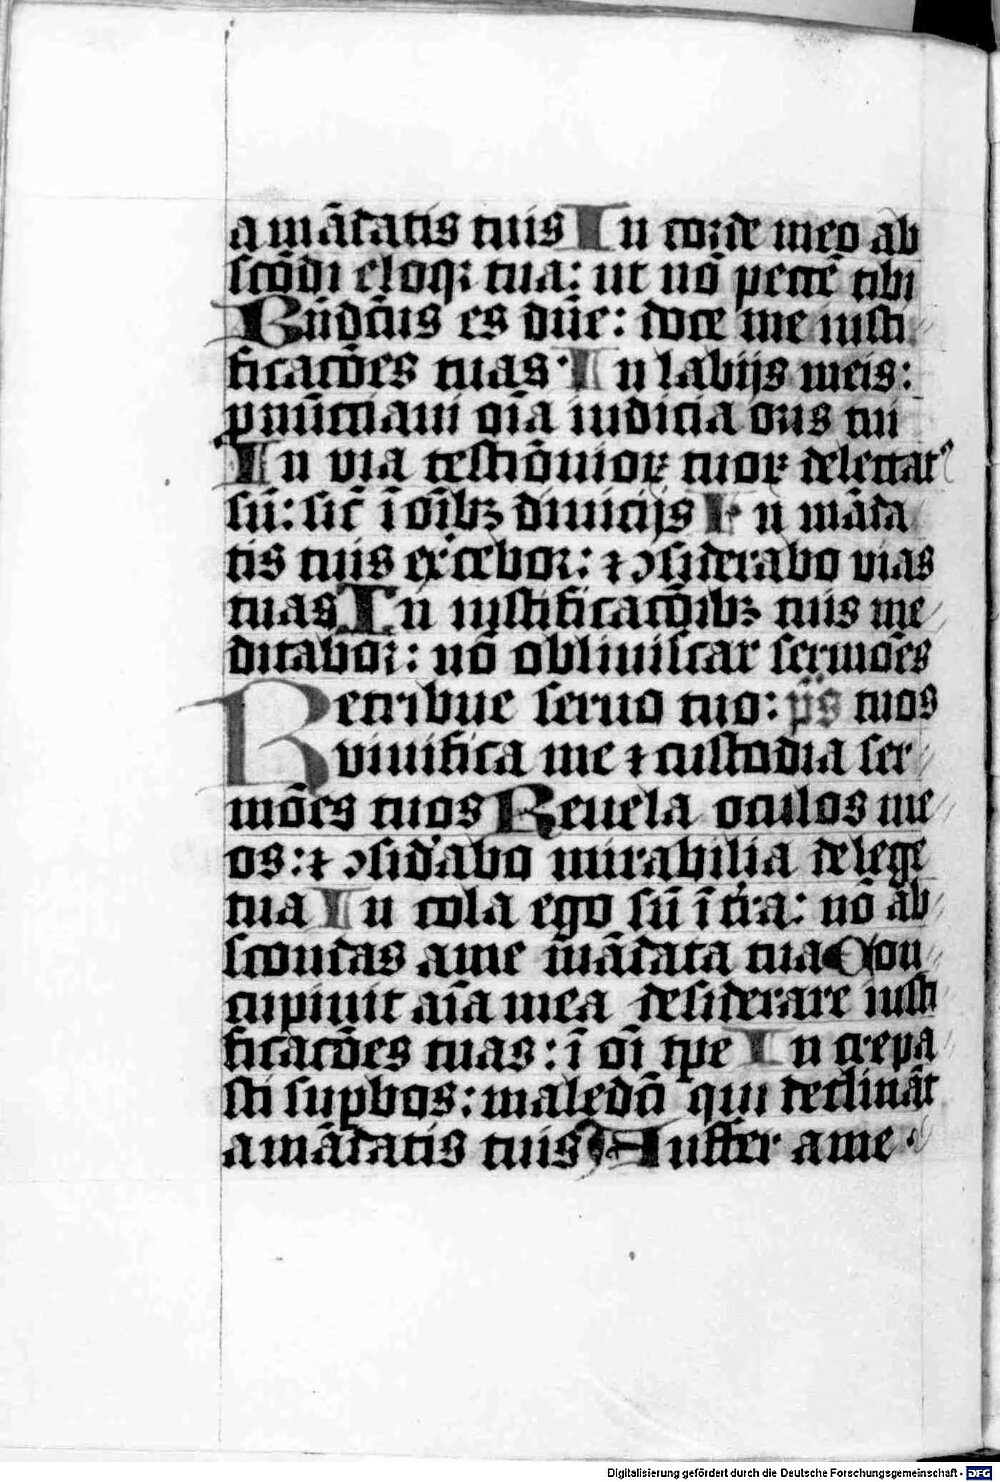 a mādatis tuis In corde meo ab
scōdi eloqꝫ tua: ut nō peccē tibi
Bn̄dc̄us es dn̄e: doce me iusti
ficacōes tuas. In labijs meis:
ꝓnūcciaui oīa iudicia oris tui
In via testiōnioꝝ tuoꝝ delectat⁹
sū: sic̄ ī oībꝫ diuicijs In māda
tis tuis ex̄cebor: ⁊ ↄsiderabo vias
tuas In iustificacōibꝫ tuis me
ditabor: nō obliuiscar sermōes
Retribue seruo tuo: tuos
viuifica me ⁊ custodia ser
mōes tuos Reuela oculos me
os: ⁊ ↄsid'abo mirabilia de lege
tua In cola ego sū ī tr̄a: nō ab
scondas a me mādata tua Con
cupiuit aīa mea desiderare iusti
ficacōes tuas: ī oī tp̄e In crepa
sti supbos: maledc̄i qui declināt
a mādatis tuis Auffer a me
Digitalisierung gefördert durch die Deutsche Forschungsgemeinschaft - DFG